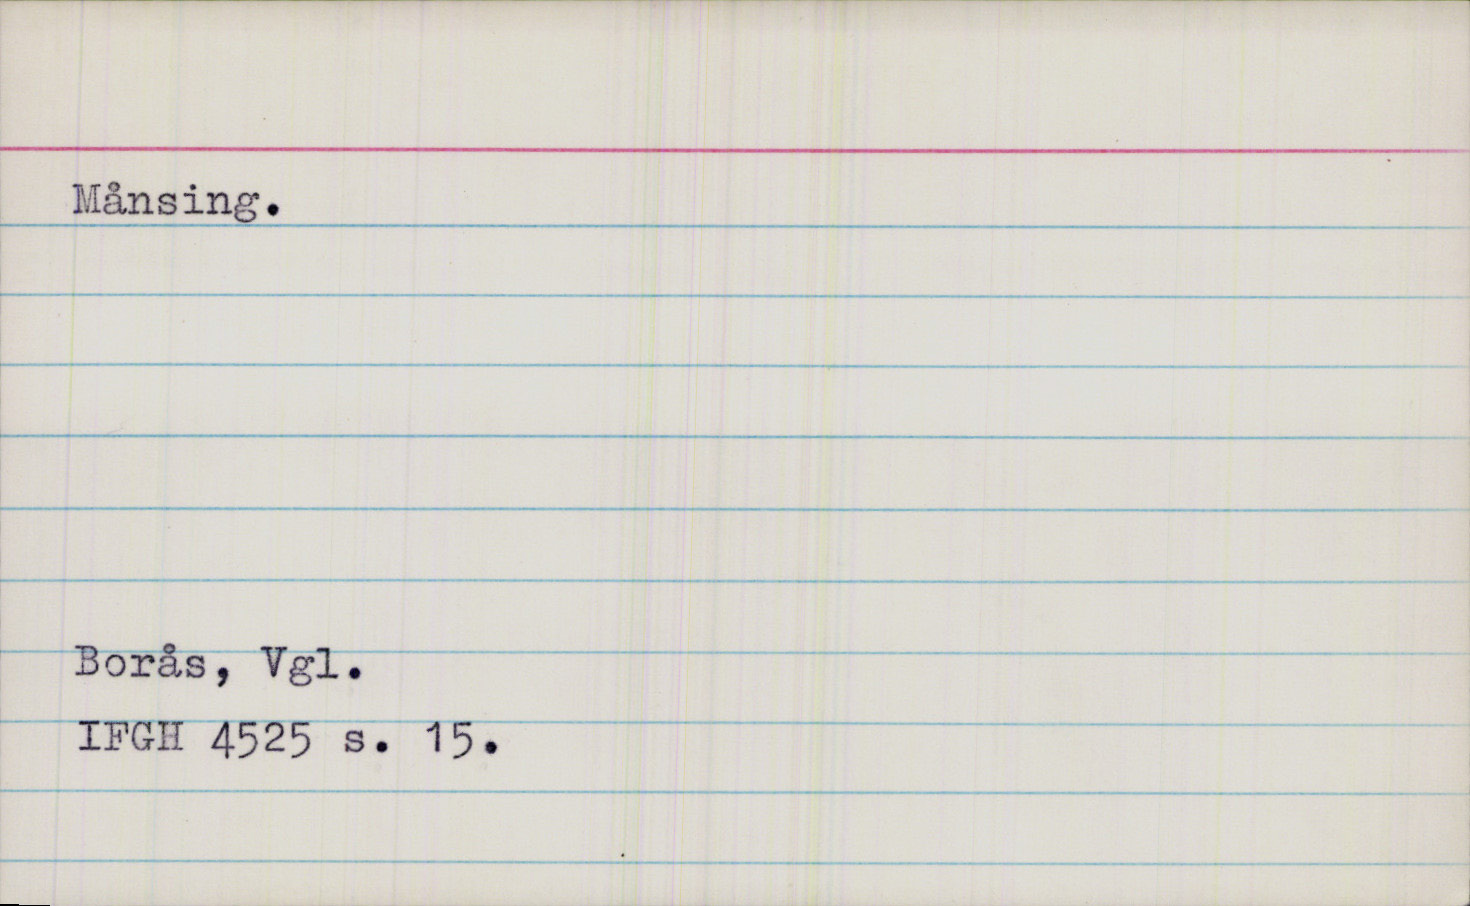 Månsing.
Borås, Vgl.
IFGH 4525 s. 15.